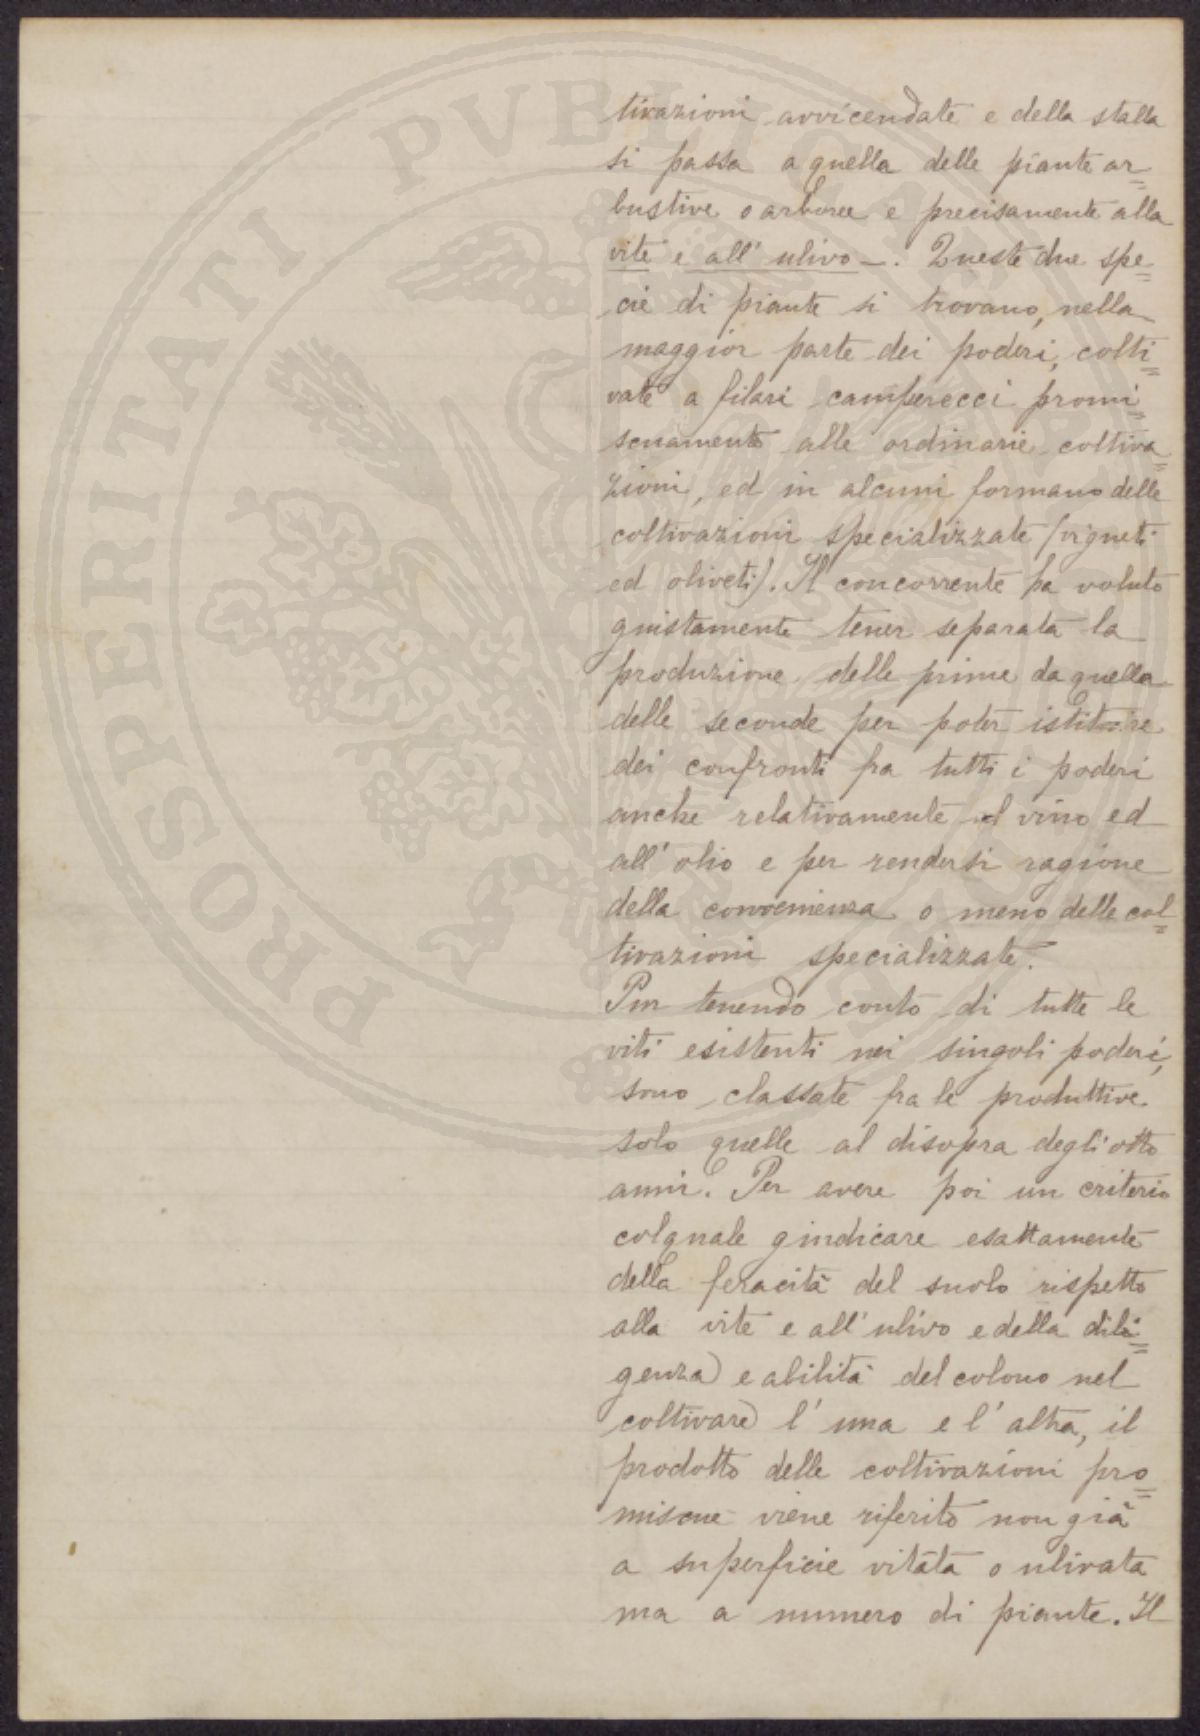 PROSPERITATI PVBLICAE
tivazioni avvicendate e della stalla
si passa a quella delle piante ar=
bustive o arboree e precisamente alla
vite e all' ulivo_. Queste due spe=
cie di piante si trovano, nella
maggior parte dei poderi, colti=
vate a filari camperecci promi=
scuamente alle ordinarie coltiva=
zioni, ed in alcuni formano delle
coltivazioni specializzate (vigneti
ed oliveti). Il concorrente ha voluto
giustamente tener separata la
produzione delle prime da quella
delle seconde per poter istituire
dei confronti fra tutti i poderi
anche relativamente al vino ed
all' olio e per rendersi ragione
della convenienza o meno delle col=
tivazioni specializzate.
Pur tenendo conto di tutte le
viti esistenti nei singoli poderi,
sono classate fra le produttive
solo quelle al disopra degli otto
anni. Per avere poi un criterio
col quale giudicare esattamente
della feracità del suolo rispetto
alla vite e all' ulivo e della dili=
genza e abilità del colono nel
coltivare l' una e l' altra, il
prodotto delle coltivazioni pro=
miscue viene riferito non già
a superficie vitata o ulivata
ma a numero di piante. Il